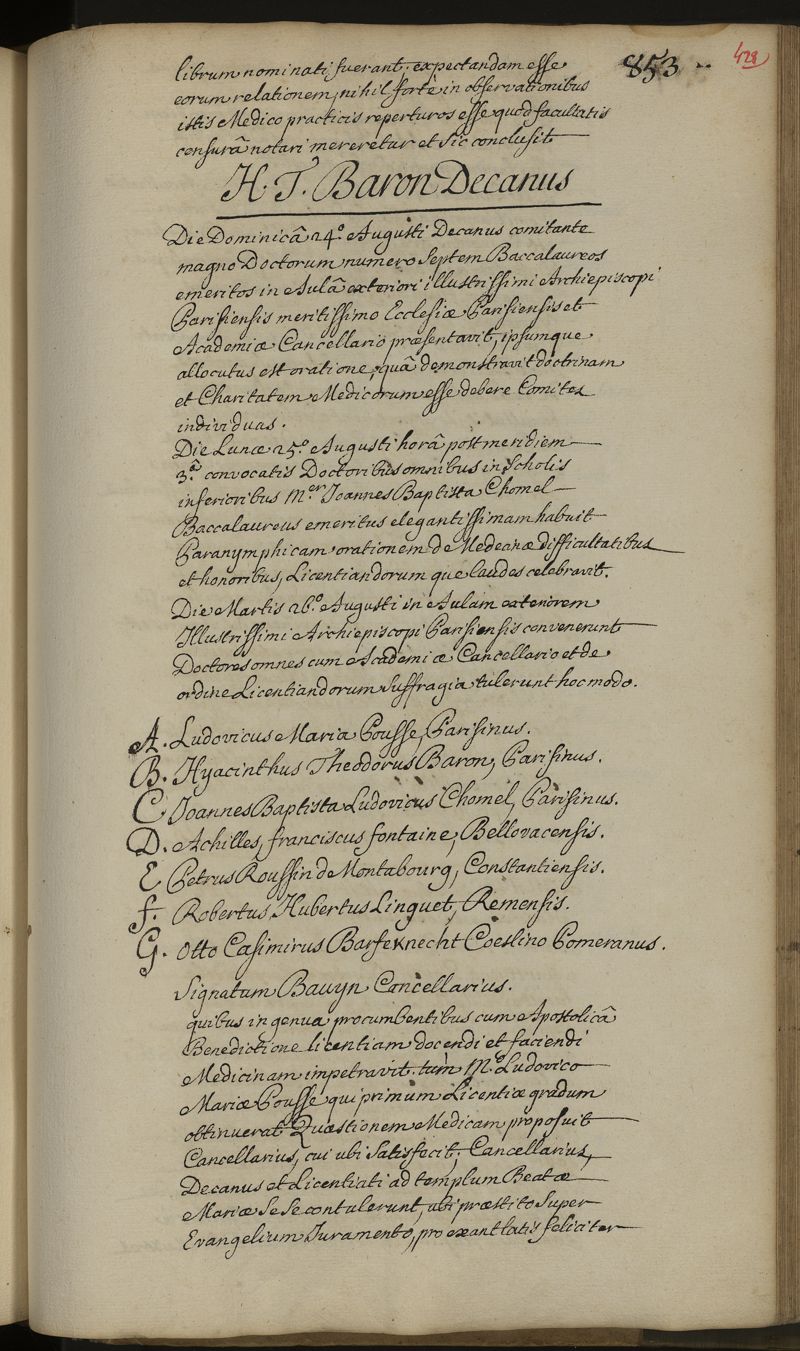 853
428
librum nominati fuerant, expectandam esse
eorum relationem, nihil forte in observationibus
istis Medico practicis reperturos esse quod facultatis
censurâ notari mereretur et sic conclusit
H. T. Baron Decanus
Die Dominicâ 24.º Augusti Decanus comitante
magno Doctorum numero Septem Baccalaureos
emeritos in Aulâ exteriori illustrissimi Archiepiscopi
Parisiensis meritissimo Ecclesiæ Parisiensis et
Academiæ Cancellario præsentavit, ipsumque
allocutus est oratione, quâ demonstravit doctrinam
et Charitatem Medicorum esse debere Comites
individuas.
Die Lunæ 25.º Augusti horâ post meridiem
3.â convocatis Doctoribus omnibus in Scholis
inferioribus M.er Joannes Baptista Chomel
Baccalaureus emeritus elegantissimam habuit
Paranymphicam orationem de Medecinæ difficultatibus
et honoribus, Licentiandorum que laudes celebravit.
Die Martis 26.º Augusti in Aulam exteriorem
Illustrissimi Archiepiscopi Parisiensis convenerunt
Doctores omnes cum Academiæ Cancellario et de
ordine Licentiandorum Suffragia tulerunt hoc modo.
A. Ludovicus Maria Pousse, Parisinus.
B. Hyacinthus Theodorus Baron, Parisinus.
C Joannes Baptista Ludovicus Chomel, Parisinus.
D. Achilles, franciscus fontaine, Bellovacensis.
E Petrus Roussin de Montabourg, Constantiensis.
f. Robertus, Hubertus Linguet, Remensis.
G. Otto Casimirus Barfeknecht Coeslino Pomeranus.
Signatum Bauyn Cancellarius.
quibus in genua procumbentibus cum Apostolicâ
Benedictione licentiam docendi et faciendi
Medicinam impetravit. tùm M.º Ludovico
Mariæ Pousse qui primum Licentiæ gradum
obtinuerat Quæstionem Medicam proposuit
Cancellarius, cui ubi Satisfecit, Cancellarius,
Decanus et Licentiati ad templum Beatæ
Mariæ Se Se contulerunt, ubi præstito Super
Evangelium Juramento, pro exantlatis feliciter